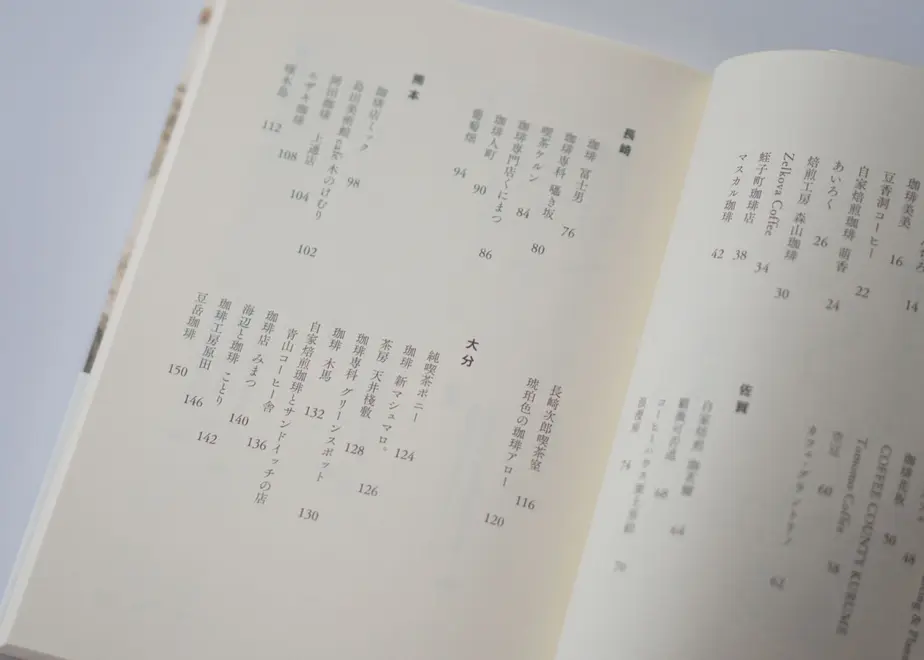 14
珈琲美美 16
豆香洞コーヒー 22
自家焙煎珈琲 萌香 24
あいろく 26
焙煎工房 森山珈琲 30
Zelkova Coffee 34
蛭子町珈琲店 38
マスカル珈琲 42
48
50
COFFEE COUNTY KURUME
Tomono Coffee 58
60
62
佐賀
自家焙煎 64
68
コーヒーハウス 70
74
長崎
珈琲 冨士男 76
珈琲専科 囁き坂 80
喫茶ケルン 84
珈琲専門店くにまつ 86
珈琲人町 90
葡萄畑 94
熊本
珈琲店ミック 98
島田美術館cafe 木のけむり 102
岡田珈琲 上通店 104
ユザキ珈琲 108
琢木島 112
長崎次郎喫茶室 116
琥珀色の珈琲アロー 120
大分
純喫茶ボニー 124
珈琲 新マシュマロ。 126
茶房 天井棧敷 128
珈琲専科 グリーンスポット 130
珈琲 木馬 132
自家焙煎珈琲とサンドイッチの店
青山コーヒー舎 136
珈琲店 みまつ 140
海辺と珈琲 ことり 142
珈琲工房原田 146
豆岳珈琲 150